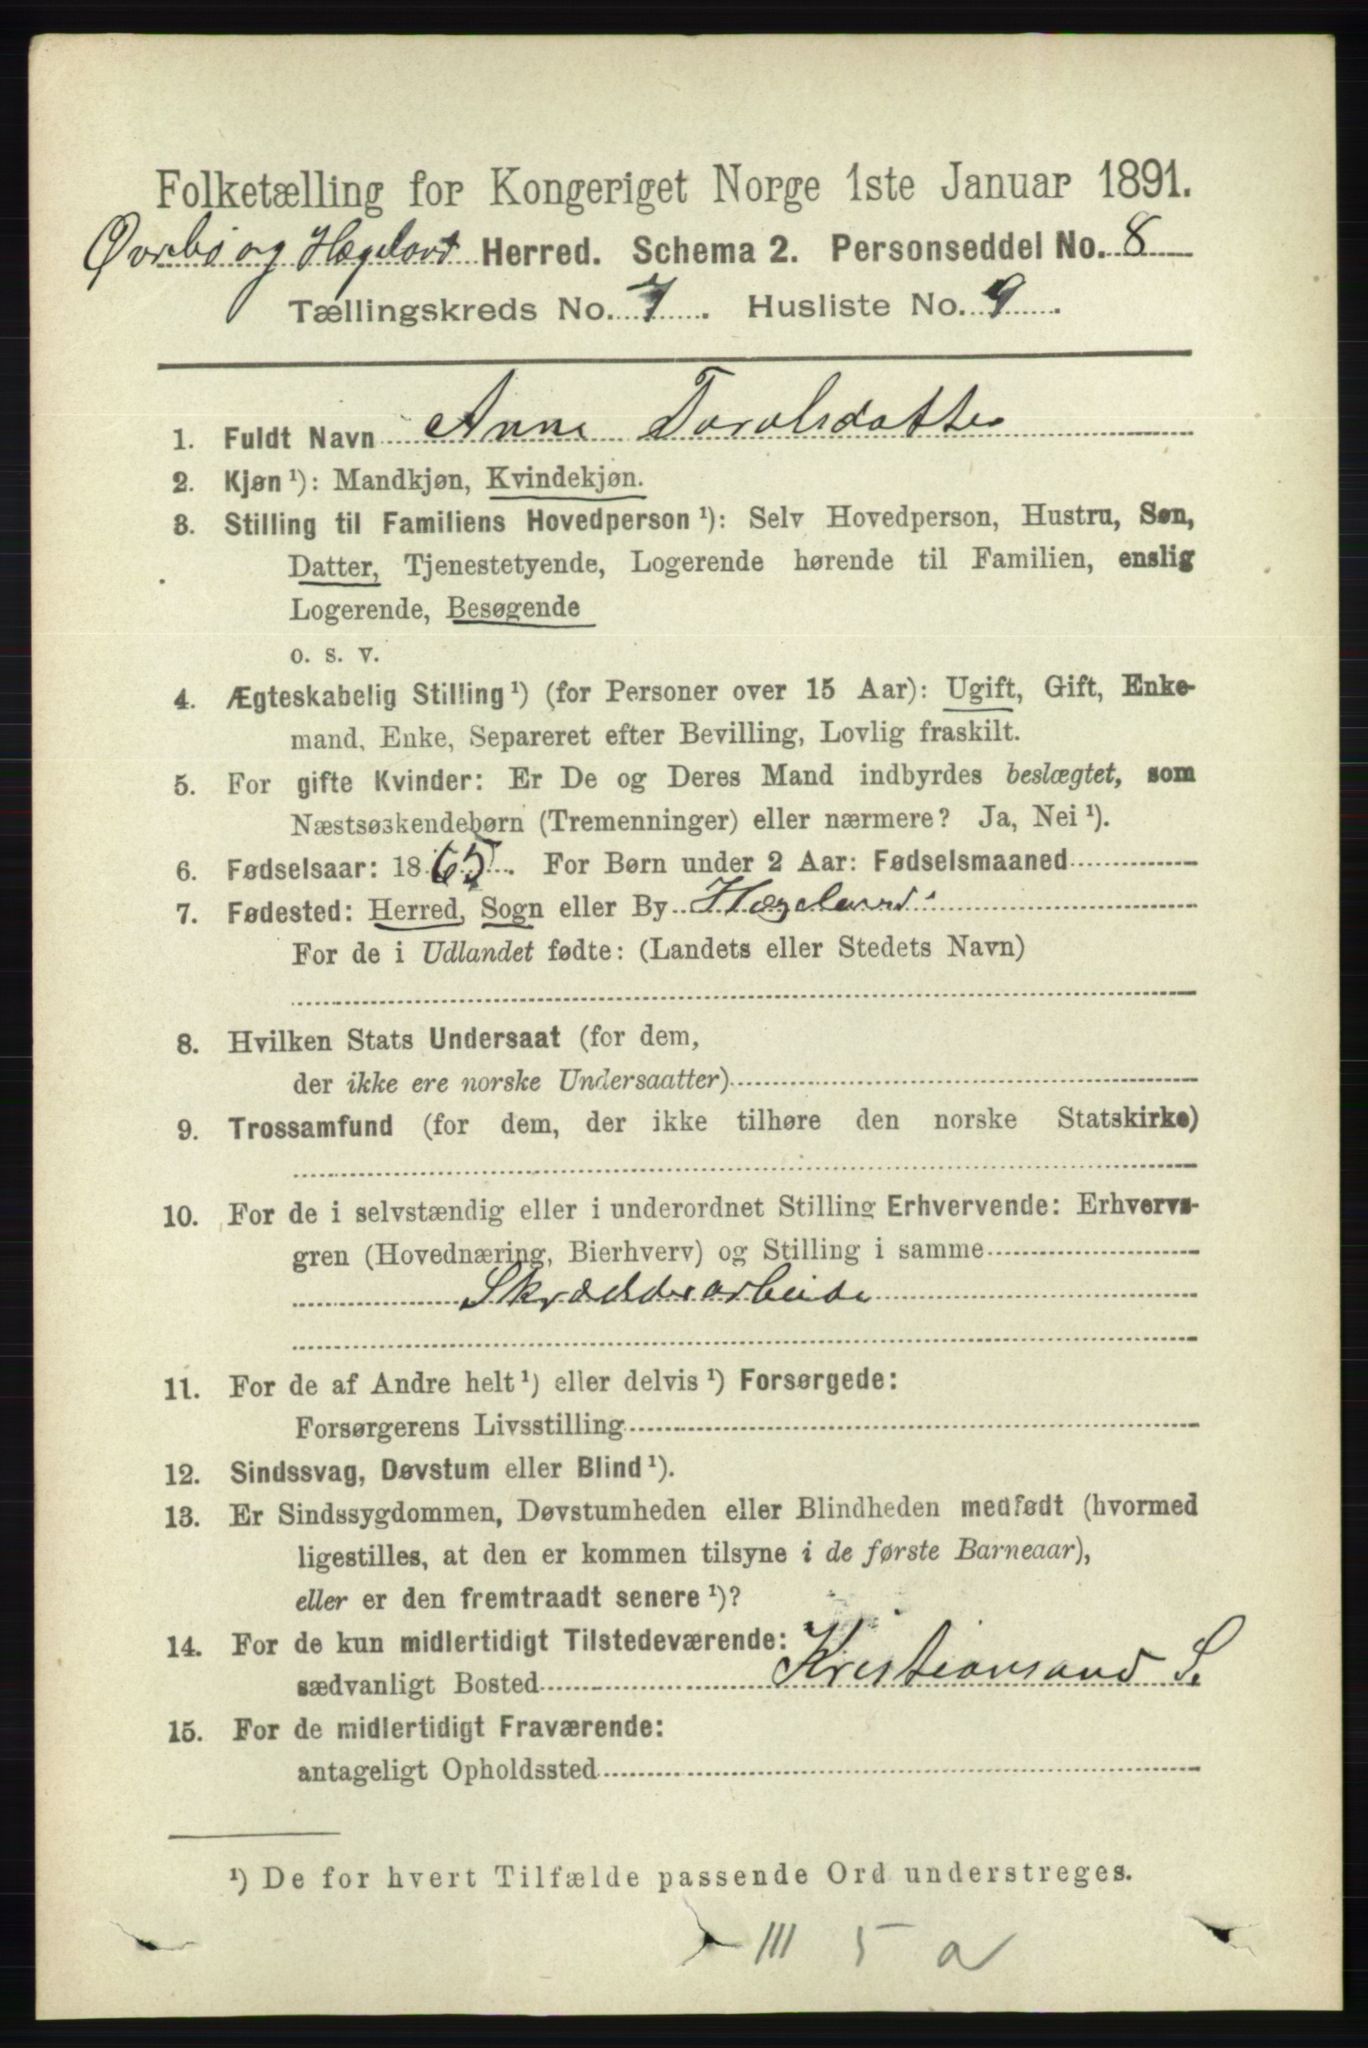 Folketælling for Kongeriget Norge 1ste Januar 1891.
Øvrebø og Hægeland Herred. Schema 2. Personseddel No. 8
Tællingskreds No. 7. Husliste No. 9.
1. Fuldt Navn Anne Taralsdatter
2. Kjøn ¹): Mandkjøn, Kvindekjøn.
3. Stilling til Familiens Hovedperson ¹): Selv Hovedperson, Hustru, Søn,
Datter, Tjenestetyende, Logerende hørende til Familien, enslig
Logerende, Besøgende
o. s. v.
4. Ægteskabelig Stilling ¹) (for Personer over 15 Aar): Ugift, Gift, Enke-
mand, Enke, Separeret efter Bevilling, Lovlig fraskilt.
5. For gifte Kvinder: Er De og Deres Mand indbyrdes beslægtet, som
Næstsøskendebørn (Tremenninger) eller nærmere? Ja, Nei ¹).
6. Fødselsaar: 1865. For Børn under 2 Aar: Fødselsmaaned
7. Fødested: Herred, Sogn eller By Hægeland
For de i Udlandet fødte: (Landets eller Stedets Navn)
8. Hvilken Stats Undersaat (for dem,
der ikke ere norske Undersaatter)
9. Trossamfund (for dem, der ikke tilhøre den norske Statskirke)
10. For de i selvstændig eller i underordnet Stilling Erhvervende: Erhvervs-
gren (Hovednæring, Bierhverv) og Stilling i samme
Skrædderarbeide
11. For de af Andre helt ¹) eller delvis ¹) Forsørgede:
Forsørgerens Livsstilling
12. Sindssvag, Døvstum eller Blind ¹).
13. Er Sindssygdommen, Døvstumheden eller Blindheden medfødt (hvormed
ligestilles, at den er kommen tilsyne i de første Barneaar),
eller er den fremtraadt senere ¹)?
14. For de kun midlertidigt Tilstedeværende:
sædvanligt Bosted Kristiansand S.
15. For de midlertidigt Fraværende:
antageligt Opholdssted
¹) De for hvert Tilfælde passende Ord understreges.
III 5 a